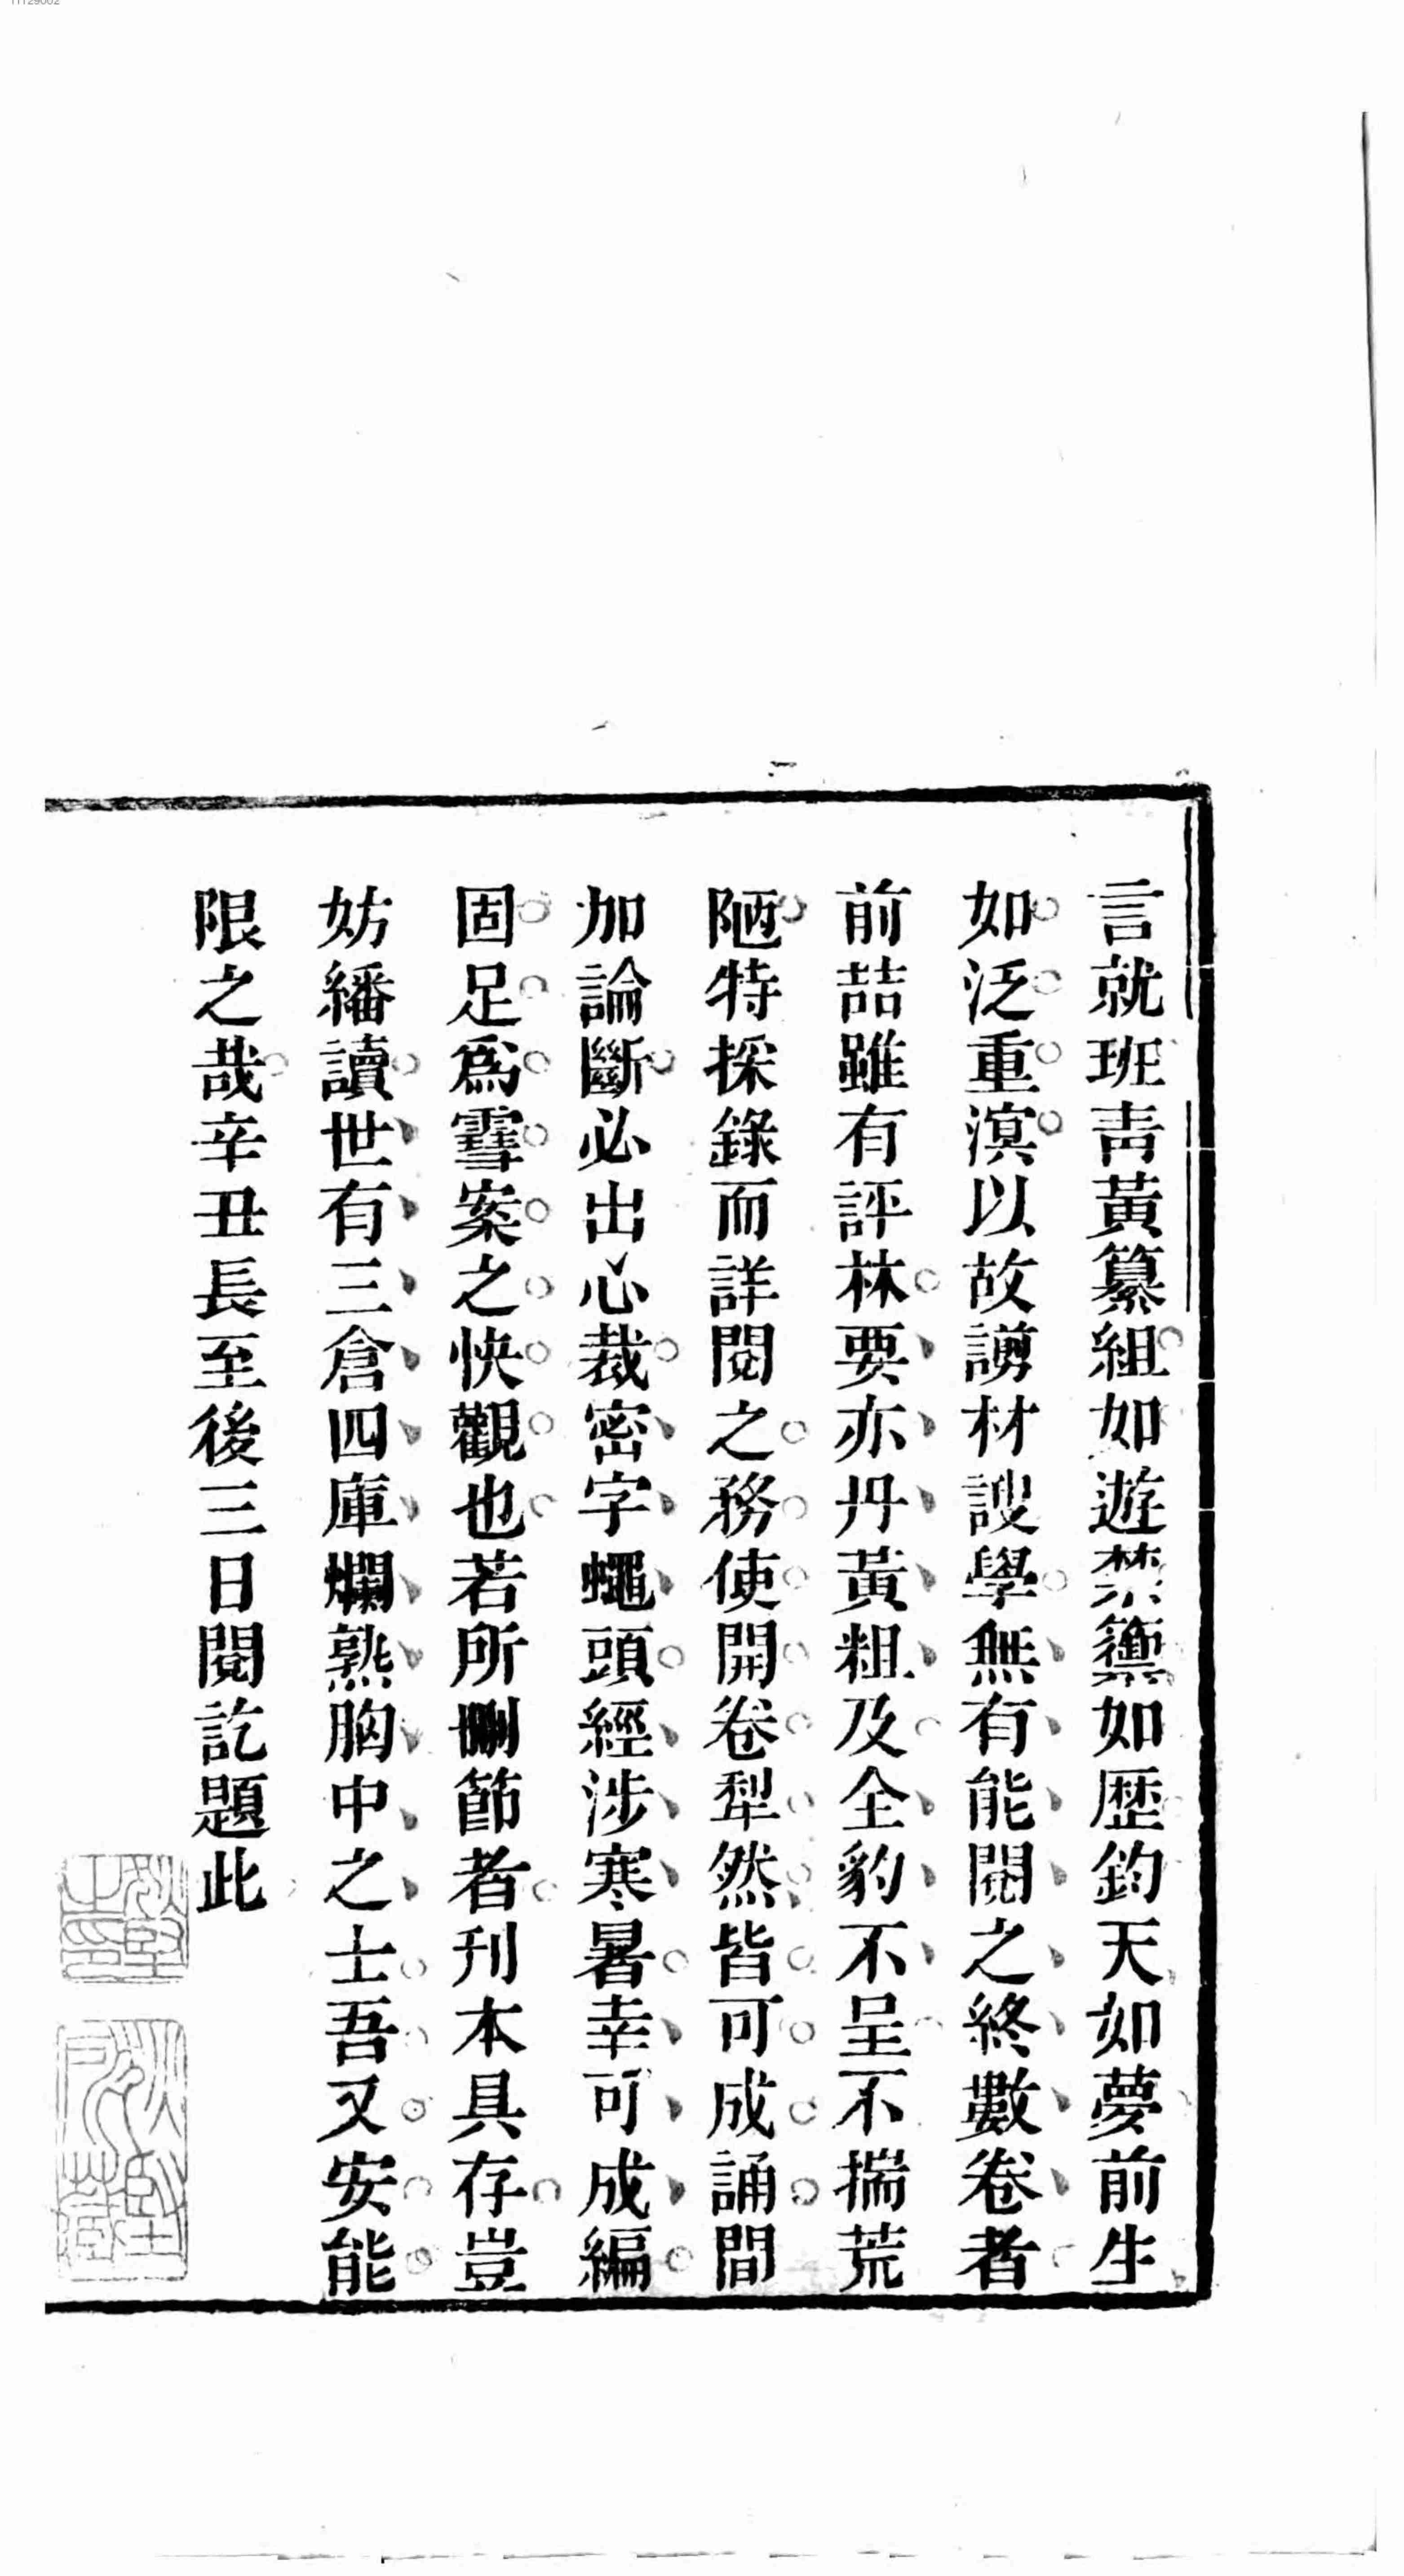 言就班青黃纂組如遊禁籞如歷鈞天如夢前生
如泛重溟以故謭材謏學無有能閱之終數卷者
前喆雖有評林要亦丹黃粗及全豹不呈不揣荒
陋特採錄而詳閱之務使開卷犁然皆可成誦間
加論斷必出心裁密字蠅頭經涉寒暑幸可成編
固足爲霎案之快觀也若所刪節者刋本具存豈
妨繙讀世有三倉四庫爛熟胸中之士吾又安能
限之哉辛丑長至後三日閱訖題此